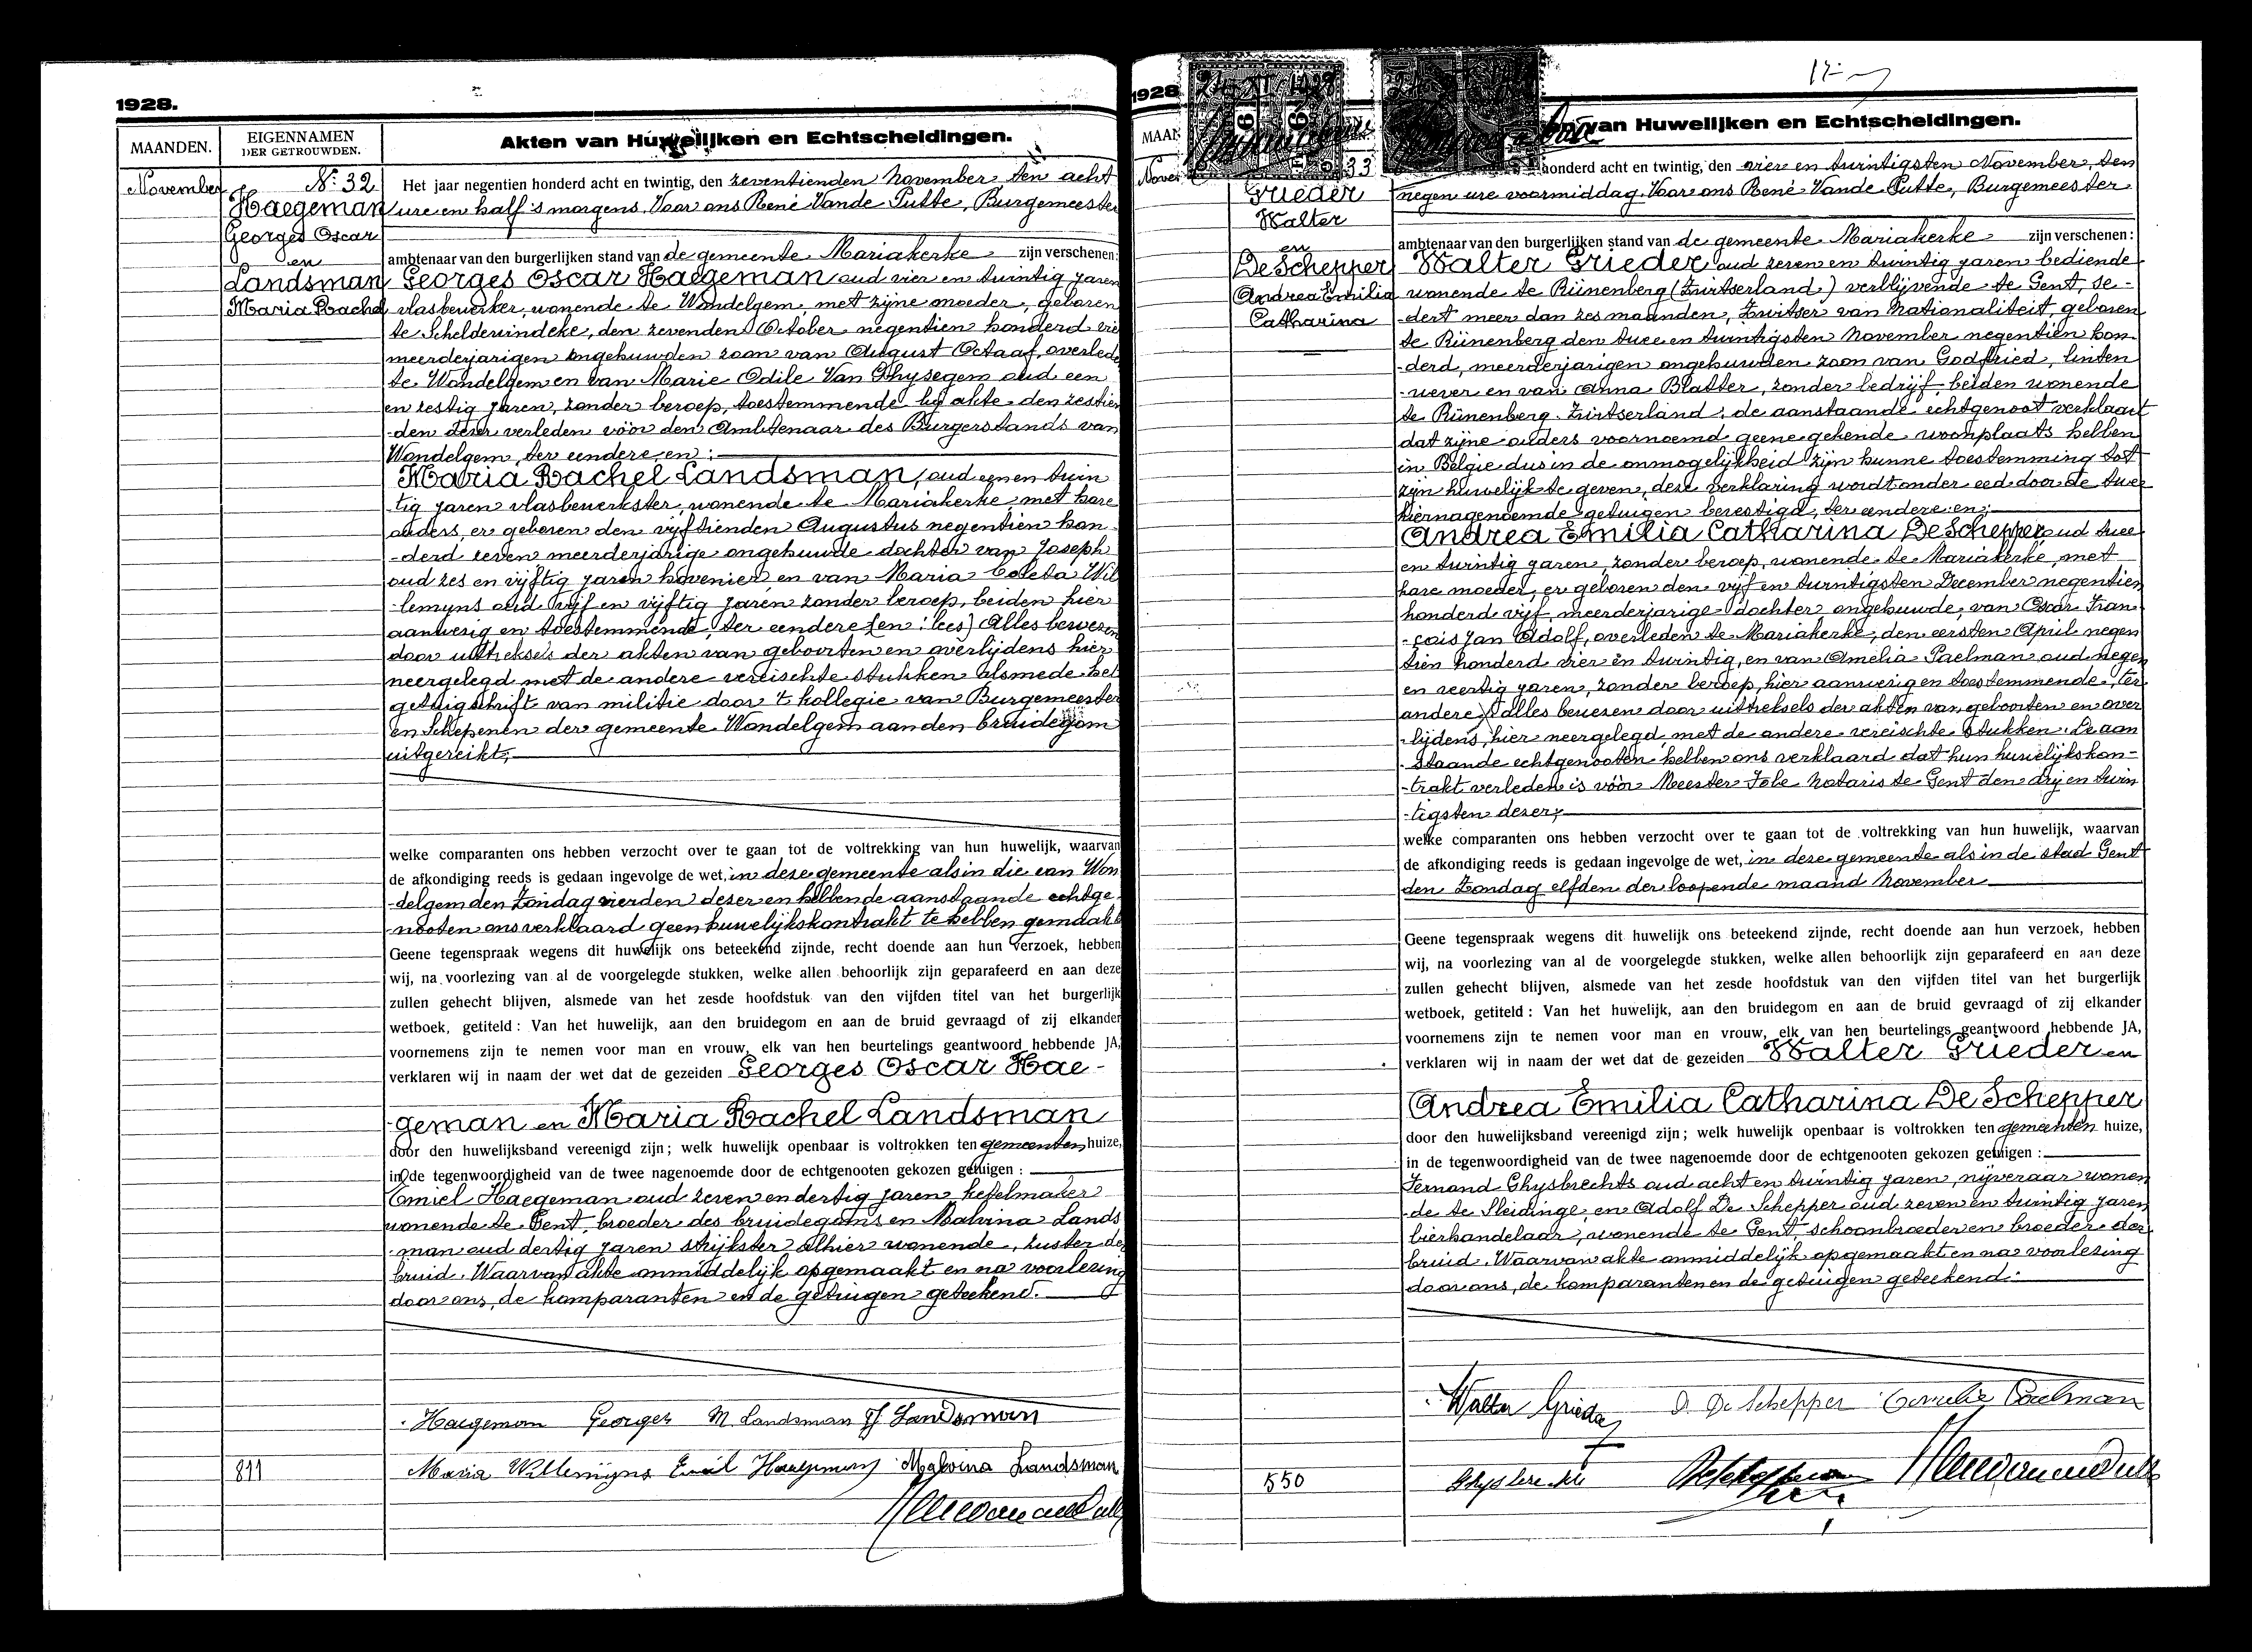 1928.
MAANDEN.
EIGENNAMEN
DER GETROUWDEN.
Akten van Huwelijken en Echtscheidingen.
November
Nr 32
Haegeman
Georges Oscar
en
Landsman
Maria Rachel
Het jaar negentien honderd acht en twintig, den zeventienden November ten acht
ure en half 's morgens Voor ons René Vande Putte, Burgemeester
ambtenaar van den burgerlijken stand van de gemeente Mariakerke zijn verschenen:
Georges Oscar Haegeman oud vier en twintig jaren
vlasbewerker, wonende te Wondelgem, met zijne moeder, geboren
te Scheldewindeke, den zevenden October negentien honderd vier
meerderjarigen ongehuwden zoon van August Octaaf, overleden
te Wondelgem en van Marie Odile Van Ghysegem oud een
en zestig jaren, zonder beroep, toestemmende bij akte den zestien
-den dezer verleden vóór den Ambtenaar des Burgerstands van
Wondelgem, ter eendere, en:
Maria Rachel Landsman, oud een en twin
-tig jaren vlasbewerkster, wonende te Mariakerke, met hare
ouders, er geboren den vijftienden Augustus negentien hon-
-derd zeven meerderjarige ongehuwde dochter van Joseph
oud zes en vijftig jaren hovenier en van Maria Coleta Wil
-lemyns oud vijf en vijftig jaren zonder beroep, beiden hier
aanwezig en toestemmende, ter eendere (en: lees) Alles bewezen
door uittreksels der akten van geboorten en overlijdens hier
neergelegd met de andere vereischte stukken alsmede het
getuigschrift van militie door 't kollegie van Burgemeester
en Schepenen der gemeente Wondelgem aan den bruidegom
uitgereikt;
welke comparanten ons hebben verzocht over te gaan tot de voltrekking van hun huwelijk, waarvan
de afkondiging reeds is gedaan ingevolge de wet, in deze gemeente als in die van Won
-delgem den Zondag vierden dezer en hebben de aanstaande echtge
-nooten ons verklaard geen huwelijkskontrakt te hebben gemaakt
Geene tegenspraak wegens dit huwelijk ons beteekend zijnde, recht doende aan hun verzoek, hebben
wij, na voorlezing van al de voorgelegde stukken, welke allen behoorlijk zijn geparafeerd en aan deze
zullen gehecht blijven, alsmede van het zesde hoofdstuk van den vijfden titel van het burgerlijk
wetboek, getiteld: Van het huwelijk, aan den bruidegom en aan de bruid gevraagd of zij elkander
voornemens zijn te nemen voor man en vrouw, elk van hen beurtelings geantwoord hebbende JA,
verklaren wij in naam der wet dat de gezeiden Georges Oscar Hae-
-geman en Maria Rachel Landsman
door den huwelijksband vereenigd zijn; welk huwelijk openbaar is voltrokken ten gemeenten huize,
in de tegenwoordigheid van de twee nagenoemde door de echtgenooten gekozen getuigen:
Emiel Haegeman oud zeven en dertig jaren ketelmaker
wonende te Gent, broeder des bruidegoms en Malvina Lands
-man oud dertig jaren strijkster alhier wonende, zuster der
bruid. Waarvan akte onmiddelijk opgemaakt en na voorlezing
door ons, de komparanten en de getuigen geteekend.
Haegeman Georges M Landsman J Landsman
811
Maria Willemijns Emiel Haegeman Malvina Landsman
1928
MAAN
33
Grieder
Walter
en
De Schepper
Andrea Emilia
Catharina
van Huwelijken en Echtscheidingen.
honderd acht en twintig, den vier en twintigsten November, ten
negen ure voormiddag. Voor ons René Vande Putte, Burgemeester
ambtenaar van den burgerlijken stand van de gemeente Mariakerke zijn verschenen:
Walter Grieder oud zeven en twintig jaren bediende
wonende te Rünenberg (Zwitserland) verblijvende te Gent, se-
-dert meer dan zes maanden, Zwitser van Nationaliteit, geboren
te Rünenberg den twee en twintigsten November negentien hon-
-derd, meerderjarigen ongehuwden zoon van Godfried, linten
-wever en van Anna Blatter, zonder bedrijf, beiden wonende
te Rünenberg Zwitserland; de aanstaande echtgenoot verklaart
dat zijne ouders voornoemd geene gekende woonplaats hebben
in Belgie dus in de onmogelijkheid zijn hunne toestemming tot
zijn huwelijk te geven, deze verklaring wordt onder eed door de twee
hiernagenoemde getuigen bevestigd, ter eendere en:
Andrea Emilia Catharina De Schepper oud twee
en twintig jaren, zonder beroep, wonende te Mariakerke, met
hare moeder, er geboren den vijf en twintigsten December negentien
honderd vijf, meerderjarige dochter ongehuwde, van Oscar Fran-
-çois Jan Adolf, overleden te Mariakerke, den eersten April negen
tien honderd vier en twintig, en van Amelia Paelman oud negen
en veertig jaren, zonder beroep, hier aanwezig en toestemmende, ter
andere; alles bewezen door uittreksels der akten van geboorten en over
-lijdens, hier neergelegd, met de andere vereischte stukken. De aan
-staande echtgenooten hebben ons verklaard dat hun huwelijkskon-
-trakt verleden is vóór Meester Fobe Notaris te Gent den drij en twin
-tigsten dezer;
welke comparanten ons hebben verzocht over te gaan tot de voltrekking van hun huwelijk, waarvan
de afkondiging reeds is gedaan ingevolge de wet, in deze gemeente als in de stad Gent
den Zondag elfden der loopende maand November
Geene tegenspraak wegens dit huwelijk ons beteekend zijnde, recht doende aan hun verzoek, hebben
wij, na voorlezing van al de voorgelegde stukken, welke allen behoorlijk zijn geparafeerd en aan deze
zullen gehecht blijven, alsmede van het zesde hoofdstuk van den vijfden titel van het burgerlijk
wetboek, getiteld: Van het huwelijk, aan den bruidegom en aan de bruid gevraagd of zij elkander
voornemens zijn te nemen voor man en vrouw, elk van hen beurtelings geantwoord hebbende JA,
verklaren wij in naam der wet dat de gezeiden Walter Grieder en
Andrea Emilia Catharina De Schepper
door den huwelijksband vereenigd zijn; welk huwelijk openbaar is voltrokken ten gemeenten huize,
in de tegenwoordigheid van de twee nagenoemde door de echtgenooten gekozen getuigen:
Fernand Ghysbrechts oud acht en twintig jaren, nijveraar wonen
-de te Sleidinge, en Adolf De Schepper oud zeven en twintig jaren
bierhandelaar, wonende te Gent, schoonbroeder en broeder der
bruid. Waarvan akte onmiddelijk opgemaakt en na voorlezing
door ons, de komparanten en de getuigen geteekend.
Walter Grieder De Schepper Paelman
550